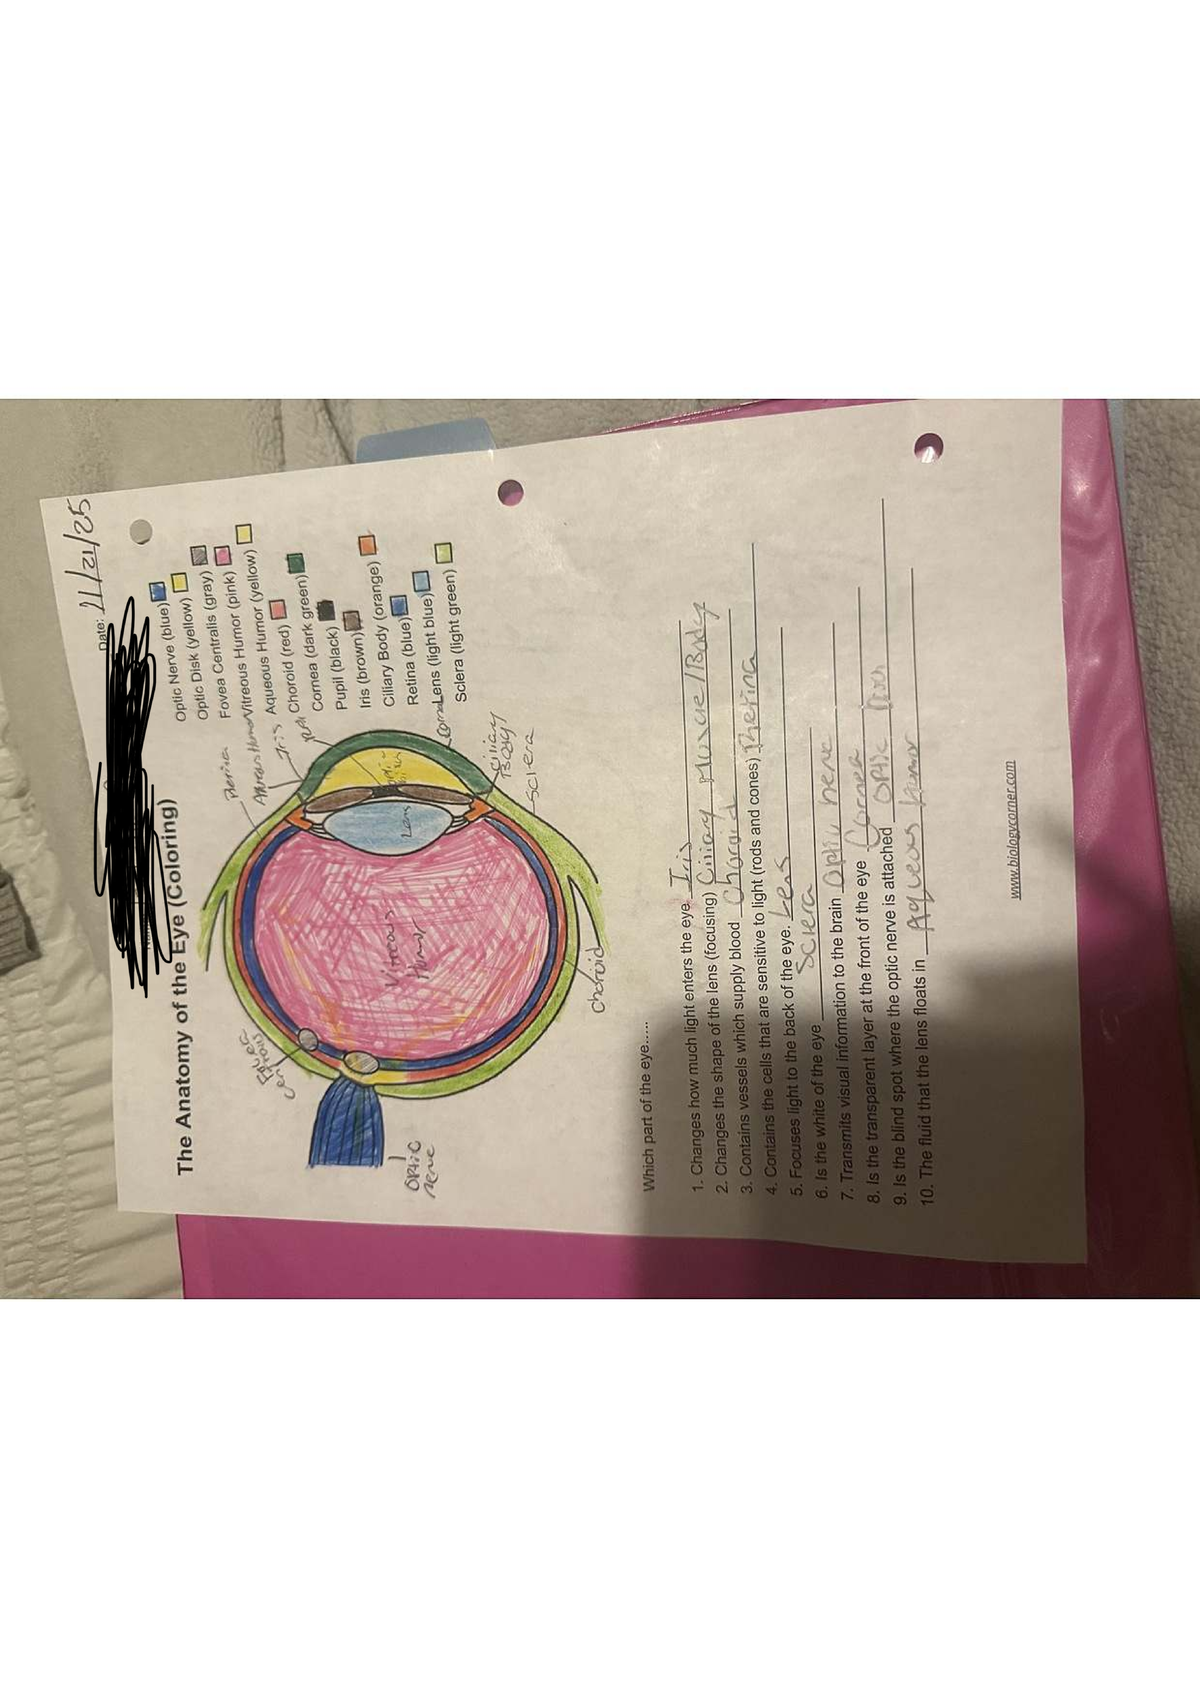 Date: 11/21/25
The Anatomy of the Eye (Coloring)
Optic Nerve (blue)
Optic Disk (yellow)
Fovea Centralis (gray)
Vitreous Humor (pink)
Aqueous Humor (yellow)
Choroid (red)
Cornea (dark green)
Pupil (black)
Iris (brown)
Ciliary Body (orange)
Retina (blue)
Lens (light blue)
Sclera (light green)
Iris
Ciliary
Body
Sclera
Lens
Vitreous
Humor
Choroid
Optic
nerve
Which part of the eye.....
1. Changes how much light enters the eye. Iris
2. Changes the shape of the lens (focusing) Ciliary Muscle/Body
3. Contains vessels which supply blood Choroid
4. Contains the cells that are sensitive to light (rods and cones) Rherina
5. Focuses light to the back of the eye. Lens
6. Is the white of the eye Sclera
7. Transmits visual information to the brain Optic nerve
8. Is the transparent layer at the front of the eye Cornea
9. Is the blind spot where the optic nerve is attached Optic
10. The fluid that the lens floats in Aqueous humor
www.biologycorner.com